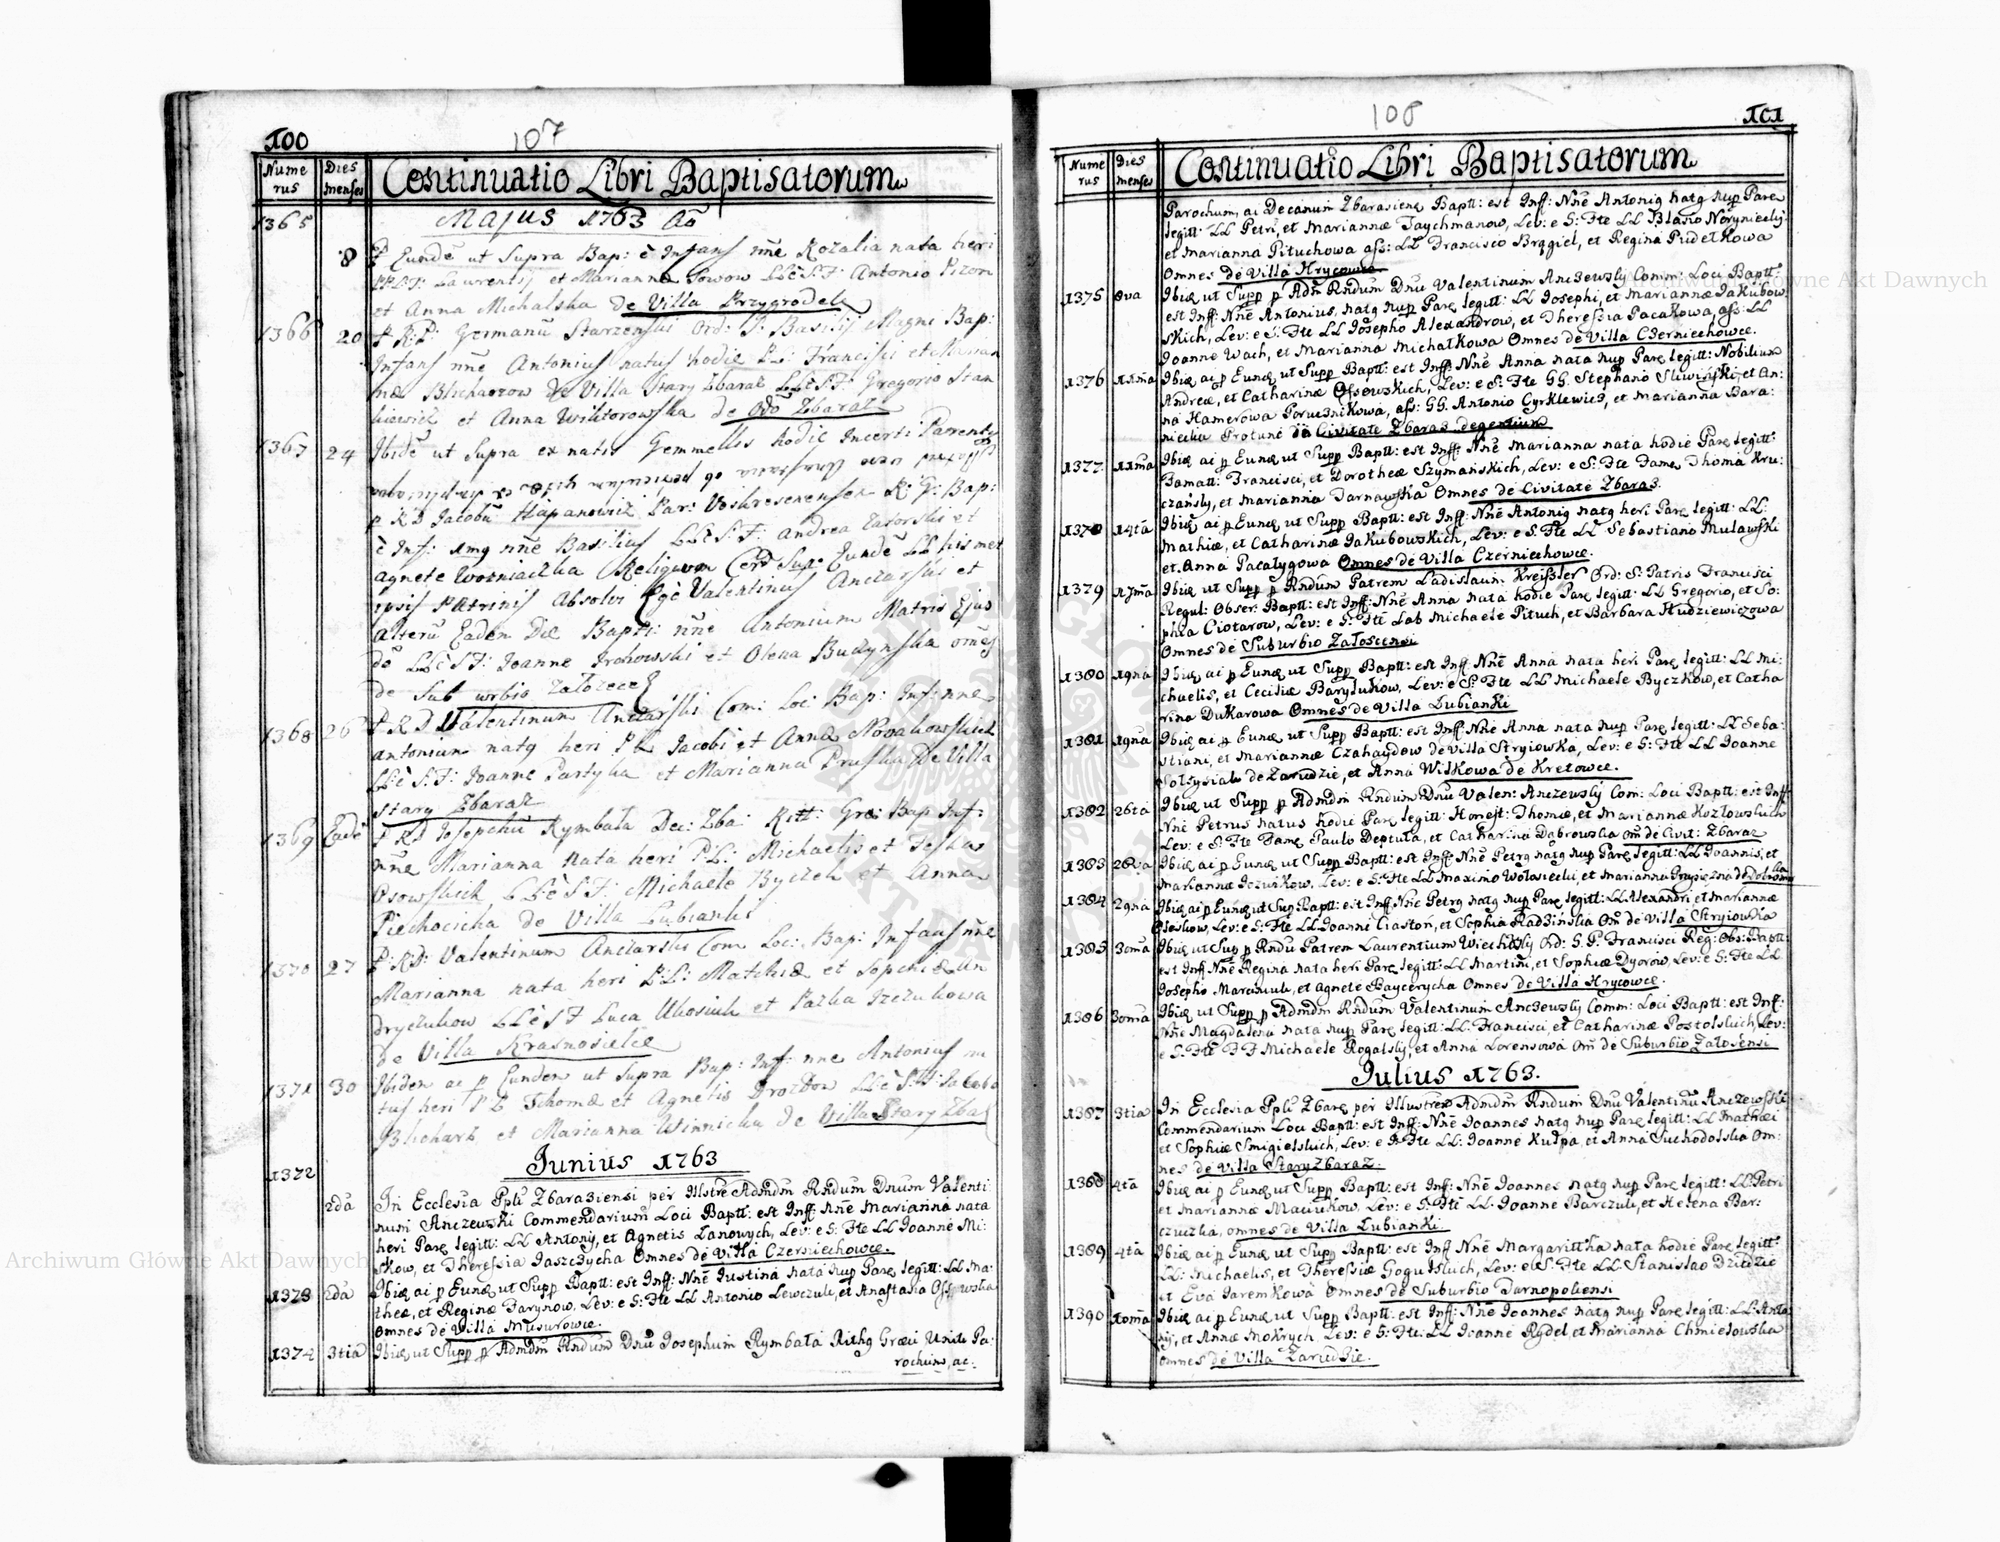 100
107
Numerus
Dies menses
Continuatio Libri Baptisatorum
1365
Majus 1763 Aō
8 P Eundē ut Supra Bap: ē Infans nñe Rozalia nata heri
Laurentij et Marianna Sowow LLēSF: Antonio Pizon
et Anna Michalska De Villa Przygrodek
1366 20 P R:P: Germanū Starzenski Ord: S: Basilij Magni Bap:
Infans nñe Antonius natus hodie PL: Francisci et Marian
næ Blicharzow De Villa Stary Zbaraz LLēSF: Gregorio Stan
kiewicz et Anna Wiktorowska de Zbaraz
1367 24 Ibidē ut Supra ex natis Gemmellis hodie Incerti Parentis
p R D Jacobū Hapanowicz Par: Voskresenensem R: G: Bap:
ē Inf: 1mg nñe Basilius LLēSF: Andrea Zatorski et
Agnete Wozniaczka Religium Eundē LL hismet
ipsis Patrinis Absolvi Valentinus Anczarski et
alterū Eadem Die Bapti: nñe Antonium Matris Ejus
dē LLēSF: Joanne Grohowski et Olena Budynska omēs
de Sub urbio Zalozece
1368 26 P R D Valentinum Anczarski Com: Loc: Bap: Inf: nñe
Antonium natg heri PL Jacobi et Annæ Nowakowskich
LLēSF: Joanne Partyka et Marianna Pruska De Villa
Stary Zbaraz
1369 Eadē P RD Josephū Rymbała Dec: Zba: Ritt: Græ: Bap Inf:
nñe Marianna Nata heri PL: Michaelis et
Osowskich LLēSF: Michaele Byczek et Anna
Piechocicka de Villa Lubianki
1370 27 P: RD: Valentinum Anczarski Com Loc: Bap: Infans nñe
Marianna nata heri PL: Mathiæ et Sophiæ An
dryczukow LLēSF Luca Ukosiuk et
de Villa Krasnosielce
1371 30 Ibidem ac p Eundem ut Supra Bap: Inf: nñe Antonius na
tus heri PL Thomæ et Agnetis Drozdow LLēSF: Jacobo
Blicharz et Marianna Winnicka de Villa Stary Zbaż
1372
Junius 1763
2da In Ecclesia Pplī Zbaraziensi per Illstrē Admdm Rndum Dnum Valenti:
num Anczewski Commendarium Loci Baptt: est Inff: Nnē Marianna nata
heri Parę legitt: LL Antonij, et Agnetis Lanowych, Lev: e S: Fte LL Joanne Mi:
skow, et Theressia Jaszczycha Omnes de Villa Czerniechowce.
1373 2da Ibidę ai p Eunde ut Supp Baptt: est Inff: Nnē Justina nata nup Parę legitt: LL Ma:
theæ, et Reginæ Farynow, Lev: e S: Fte LL Antonio Lewczuk, et Anastasia
Omnes de Villa Musurowce.
1374 3tia Ibidę ut Supp p Admdm Rndum Dnū Josephum Rymbała Rithg Græci Uniti Pa:
rochum, ac:
108
101
Numerus
Dies menses
Continuatio Libri Baptisatorum
Parochum, ai Decanum Zbarasienę Baptt: est Inff: Nnē Antonig natg nup Parę
legitt: LL Petri, et Mariannæ Taychmanow, Lev: e S: Fte LL Blasio Noryniecky
et Marianna Pituchowa ass: LL Francisco Brągiel, et Regina Pudełkowa
Omnes de Villa Hrycowce
1375 8va Ibidę ut Supp p Adm Rndum Dnū Valentinum Anczewsky Comm: Loci Baptt:
est Inff: Nnē Antonius, natg nup Parę legitt: LL Josephi, et Mariannæ Jakubow
skich, Lev: e S: Fte LL Josepho Alexandrow, et Theressia Pacakowa, ass: LL
Joanne Wach, et Marianna Michałkowa Omnes de Villa Czerniechowce.
1376 11ma Ibidę ai p Eundę ut Supp Baptt: est Inff: Nnē Anna nata nup Parę legitt: Nobilium
Andreæ, et Catharinæ Ossowskich, Lev: e S: Fte GG Stephano Sliwiński, et An:
na Hamerowa Porucznikowa, ass: GG. Antonio Cyrklewicz, et Marianna Bara:
niecka Protunc in Civitate Zbaraz degentium
1377 11ma Ibidę ai p Eundę ut Supp Baptt: est Inff: Nnē Marianna nata hodie Parę legitt:
Famatt: Francisci, et Dorotheæ Szymańskich, Lev: e S: Fte Fame Thoma Kru:
czański, et Marianna Tarnawska Omnes de Civitate Zbaraz.
1378 14ta Ibidę ai p Eundę ut Supp Baptt: est Inff: Nnē Antonig natg heri Parę legitt: LL:
Mathiæ, et Catharinæ Jakubowskich, Lev: e S: Fte LL Sebastiano Mulawski
et Anna Pacałygowa Omnes de Villa Czerniechowce.
1379 17ma Ibidę ut Supp p Rndum Patrem Ladislaum Kreissler Ord: S: Patris Francisci
Regul: Obser: Baptt: est Inff: Nnē Anna nata hodie Parę legitt: LL Gregorio, et So:
phia Ciotarow, Lev: e S: Fte Lab Michaele Pituch, et Barbara Studziewiczowa
Omnes de Suburbio Załoscensi
1380 19na Ibidę ai p Eundę ut Supp Baptt: est Inff: Nnē Anna nata heri Parę legitt: LL Mi:
chaelis, et Ceciliæ Baryłukow, Lev: e S: Fte LL Michaele Byczkow, et Catha
rina Dukarowa Omnes de Villa Lubianki
1381 19na Ibidę ai p Eundę ut Supp Baptt: est Inff: Nnē Anna nata nup Parę legitt: LL Seba:
stiani, et Mariannæ Czahaydow de Villa Stryiowka, Lev: e S: Fte LL Joanne
Sołtysiak de Zarudzie, et Anna Wilkowa de Kretowce.
1382 26ta Ibidę ut Supp p Admdm Rndum Dnū Valen: Anczewsky Com: Loci Baptt: est Inff:
Nnē Petrus natus hodie Parę legitt: Honest: Thomæ, et Mariannæ Kozłowskich
Lev: e S: Fte Fame Paulo Deptuła, et Catharina Dąbrowska om̄ de Civit: Zbaraz
1383 28va Ibidę ai p Eundę ut Supp Baptt: est Inff: Nnē Petrg natg nup Parę legitt: LL Joannis, et
Mariannæ Jczukow, Lev: e S: Fte LL Maximo Wołosiecki, et Marianna
1384 29na Ibidę ai p Eundę ut Sup Baptt: est Inff: Nnē Petrg natg nup Parę legitt: LL Alexandri, et Mariannæ
Oleskow, Lev: e S: Fte LL Joanne Ciaston, et Sophia Radzińska Om̄ de Villa Stryiowka
1385 30ma Ibidę ut Sup p Rndū Patrem Laurentium Wiechtsky Ord: S: P: Francisci Reg: Obs: Baptt:
est Inff: Nnē Regina nata heri Parę legitt: LL Martini, et Sophiæ Dyorow, Lev: e S: Fte LL
Josepho Marciniuk, et Agnete Baycerycha Omnes de Villa Hrycowce.
1386 30ma Ibidę ut Supp p Admdm Rndum Valentinum Anczewsky Comm: Loci Baptt: est Inff:
Nnē Magdalena nata nup Parę legitt: LL: Francisci, et Catharinæ Postolskich, Lev:
e S: Fte FF Michaele Rogalsky, et Anna Lorensowa Om̄ de Suburbio Załosensi
Julius 1763.
1387 3tia In Ecclesia Pplī Zbarę per Illustrem Admdm Rndum Dnū Valentinū Anczewski
Commendarium Loci Baptt: est Inff: Nnē Joannes natg nup Parę legitt: LL Mathæi
et Sophiæ Smigielskich, Lev: e S: Fte LL: Joanne Kulpa, et Anna Suchodolska Om:
nes de Villa Stary Zbaraz.
1388 4ta Ibidę ai p Eundę ut Supp Baptt: est Inff: Nnē Joannes natg nup Parę legitt: LL: Petri
et Mariannæ Maciukow, Lev: e S: Fte LL. Joanne Barczuk, et Helena Bar:
czuczka, omnes de Villa Lubianki
1389 4ta Ibidę ai p Eundę ut Supp Baptt: est Inff Nnē Margarittha nata hodie Parę legitt:
LL: Michaelis, et Theressiæ Gogulskich, Lev: e S: Fte LL Stanislao Dziedzic
et Eva Jaremkowa Omnes de Suburbio Tarnopoliensi
1390 10ma Ibidę ai p Eundę ut Supp Baptt: est Inff: Nnē Joannes natg nup Parę legitt: LL: Anto
nij, et Annæ Mokrych, Lev: e S: Fte: LL Joanne Rydel, et Marianna Chmielowska
Omnes de Villa Zarudzie.
Archiwum Główne Akt Dawnych
Archiwum Główne Akt Dawnych
ARCHIWUM GŁÓWNE AKT DAWNYCH